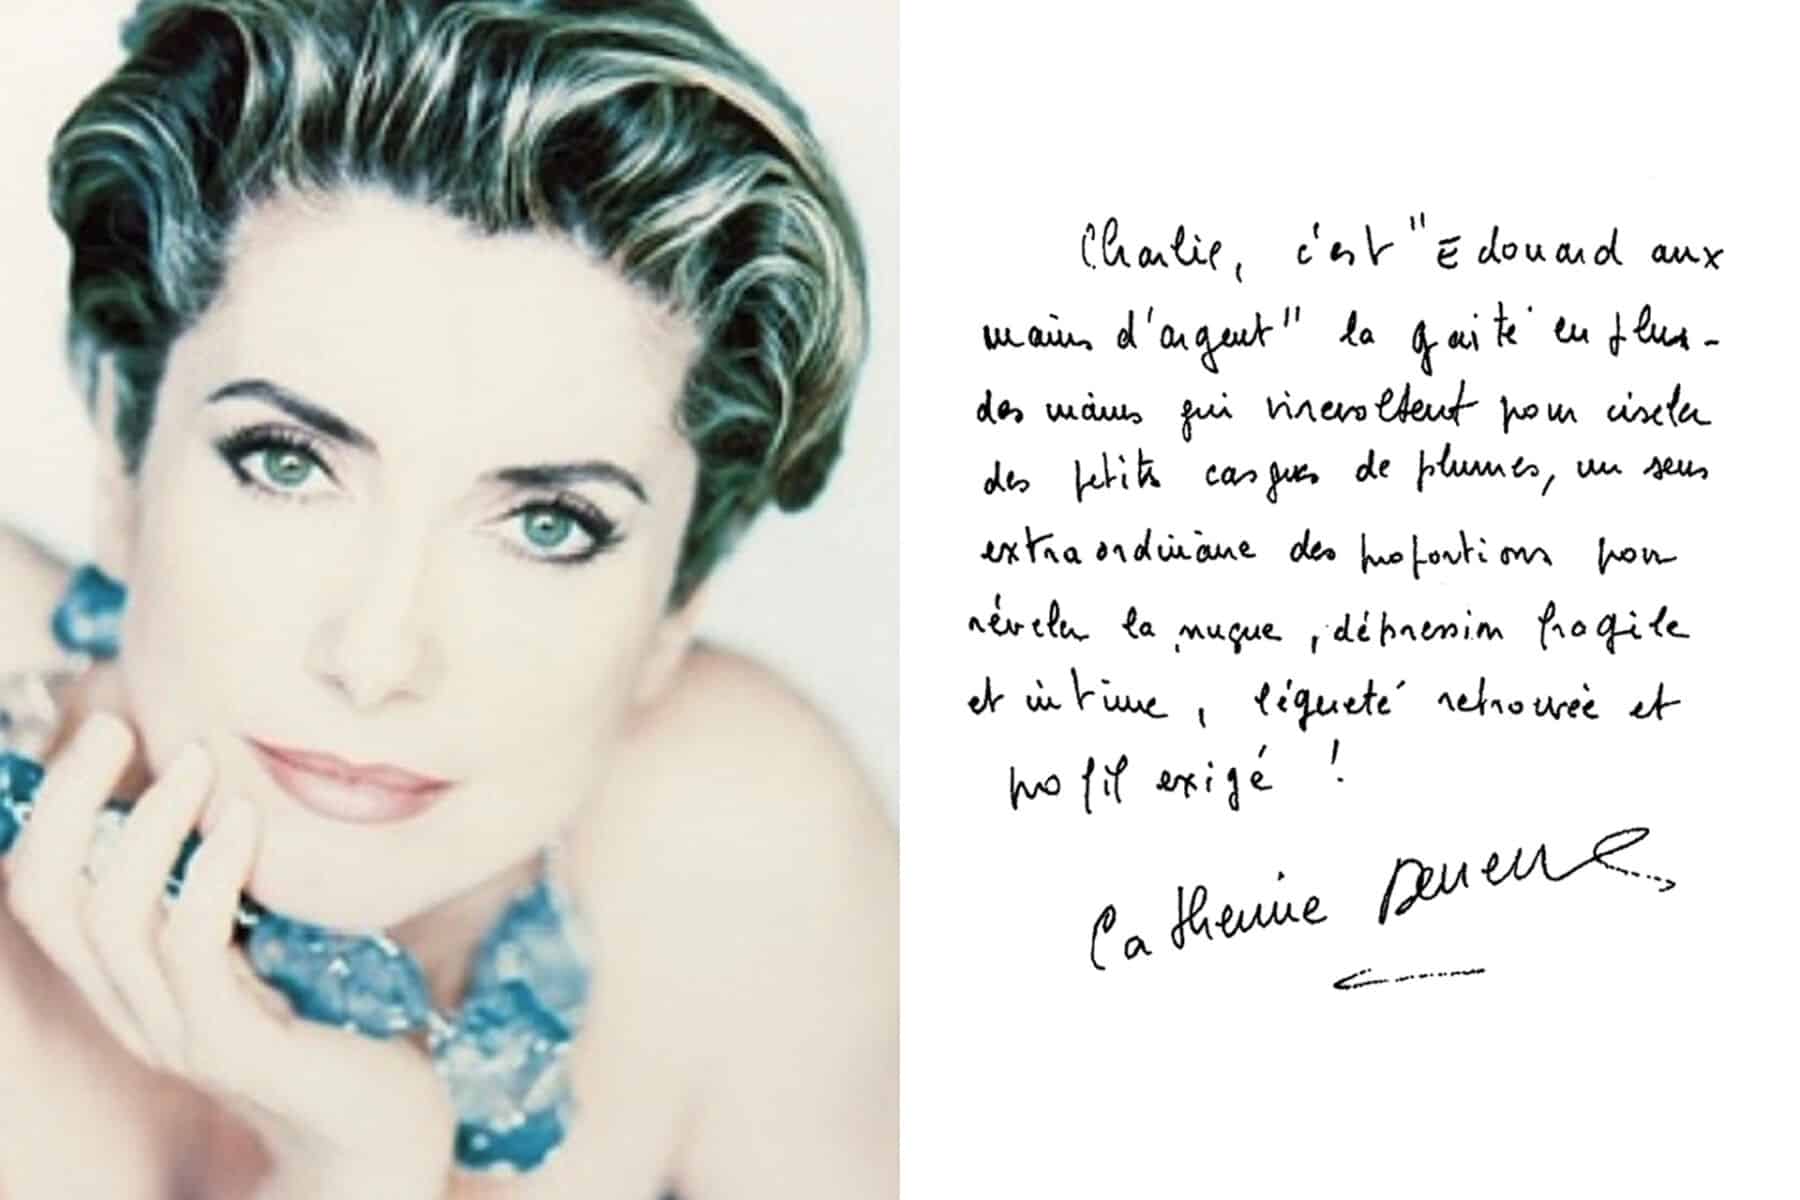 Charlie, c'est "Edouard aux
mains d'argent" la gaité en plus -
des mains qui virevoltent pour ciseler
des petits casques de plumes, un sens
extraordinaire des proportions pour
révéler la nuque, dépression fragile
et intime, légèreté retrouvée et
profil exigé !
Catherine Deneuve